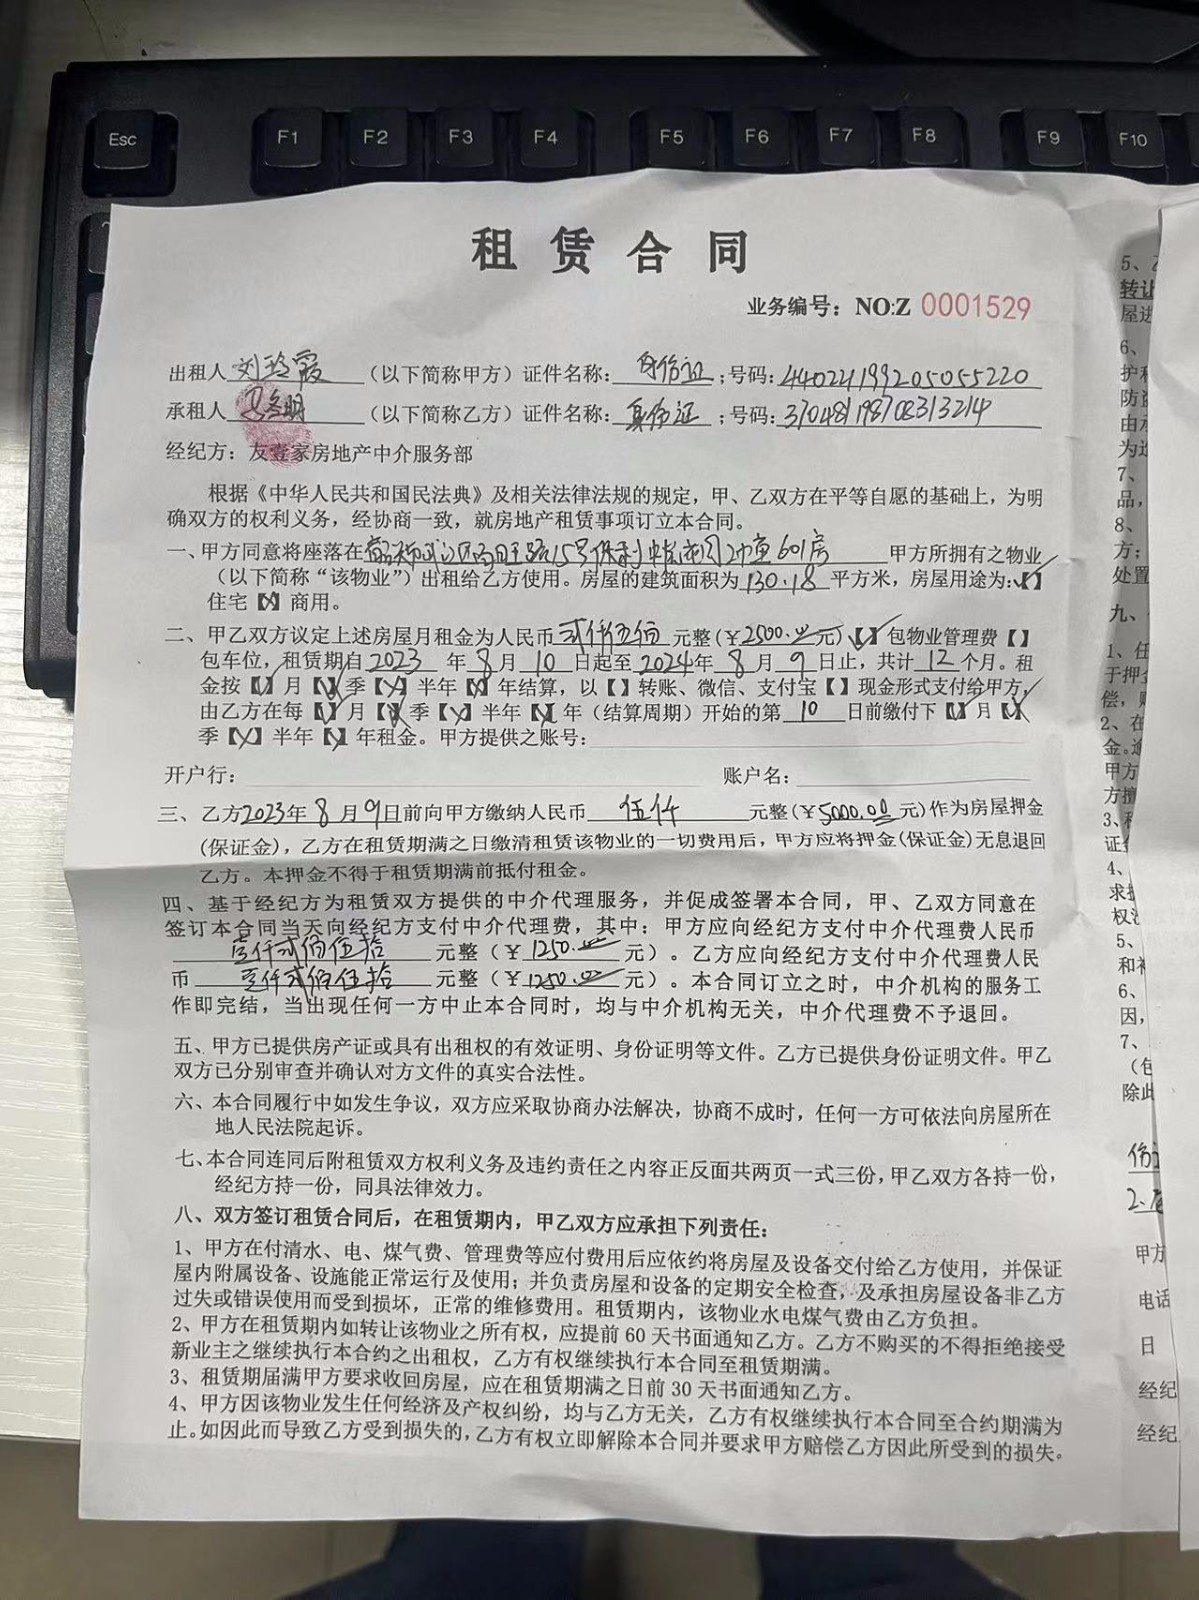 Esc F1 F2 F3 F4 F5 F6 F7 F8 F9 F10
租赁合同
业务编号：NO:Z 0001529
出租人 刘玲霞 （以下简称甲方）证件名称：身份证；号码：440221199205055220
承租人 （以下简称乙方）证件名称：身份证；号码：370481198708313214
经纪方：友壹家房地产中介服务部
根据《中华人民共和国民法典》及相关法律法规的规定，甲、乙双方在平等自愿的基础上，为明
确双方的权利义务，经协商一致，就房地产租赁事项订立本合同。
一、甲方同意将座落在 15号保利 601房 甲方所拥有之物业
（以下简称“该物业”）出租给乙方使用。房屋的建筑面积为130.18平方米，房屋用途为：【✓】
住宅【X】商用。
二、甲乙双方议定上述房屋月租金为人民币贰仟伍佰元整(￥2500.00元)【✓】包物业管理费【】
包车位，租赁期自2023年8月10日起至2024年8月9日止，共计12个月。租
金按【】月【】季【】半年【】年结算，以【】转账、微信、支付宝【】现金形式支付给甲方，
由乙方在每【】月【】季【】半年【】年（结算周期）开始的第10日前缴付下【】月【】
季【】半年【】年租金。甲方提供之账号：
开户行： 账户名：
三、乙方2023年8月9日前向甲方缴纳人民币 伍仟 元整(￥5000.00元)作为房屋押金
(保证金)，乙方在租赁期满之日缴清租赁该物业的一切费用后，甲方应将押金(保证金)无息退回
乙方。本押金不得于租赁期满前抵付租金。
四、基于经纪方为租赁双方提供的中介代理服务，并促成签署本合同，甲、乙双方同意在
签订本合同当天向经纪方支付中介代理费，其中：甲方应向经纪方支付中介代理费人民币
壹仟贰佰伍拾 元整（￥1250.00元）。乙方应向经纪方支付中介代理费人民
币 壹仟贰佰伍拾 元整（￥1250.00元）。本合同订立之时，中介机构的服务工
作即完结，当出现任何一方中止本合同时，均与中介机构无关，中介代理费不予退回。
五、甲方已提供房产证或具有出租权的有效证明、身份证明等文件。乙方已提供身份证明文件。甲乙
双方已分别审查并确认对方文件的真实合法性。
六、本合同履行中如发生争议，双方应采取协商办法解决，协商不成时，任何一方可依法向房屋所在
地人民法院起诉。
七、本合同连同后附租赁双方权利义务及违约责任之内容正反面共两页一式三份，甲乙双方各持一份，
经纪方持一份，同具法律效力。
八、双方签订租赁合同后，在租赁期内，甲乙双方应承担下列责任：
1、甲方在付清水、电、煤气费、管理费等应付费用后应依约将房屋及设备交付给乙方使用，并保证
屋内附属设备、设施能正常运行及使用；并负责房屋和设备的定期安全检查，及承担房屋设备非乙方
过失或错误使用而受到损坏，正常的维修费用。租赁期内，该物业水电煤气费由乙方负担。
2、甲方在租赁期内如转让该物业之所有权，应提前60天书面通知乙方。乙方不购买的不得拒绝接受
新业主之继续执行本合约之出租权，乙方有权继续执行本合同至租赁期满。
3、租赁期届满甲方要求收回房屋，应在租赁期满之日前30天书面通知乙方。
4、甲方因该物业发生任何经济及产权纠纷，均与乙方无关，乙方有权继续执行本合同至合约期满为
止。如因此而导致乙方受到损失的，乙方有权立即解除本合同并要求甲方赔偿乙方因此所受到的损失。
5、乙
转让
屋
6、
护
防
由
为
7、
品，
8、
方；
处置
九、
1、任
于押
偿，
2、在
金。
甲方
方
3、
证
4、
求
权
5、
和
6、
因，
7、
（包
除此
甲方
电话
日
经纪
经纪